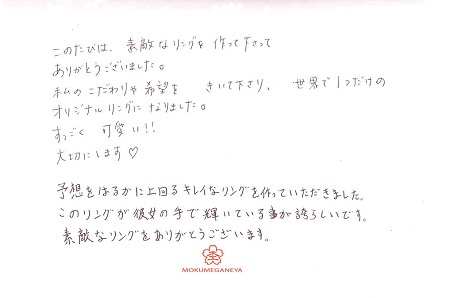 このたびは、素敵なリングを作って下さって
ありがとうございました。
私のこだわりや希望を きいて下さり、世界で1つだけの
オリジナルリングになりました。
すっごく 可愛い!!
大切にします♡
予想をはるかに上回るキレイなリングを作っていただきました。
このリングが彼女の手で輝いている事が誇らしいです。
素敵なリングをありがとうございます。
MOKUMEGANEYA